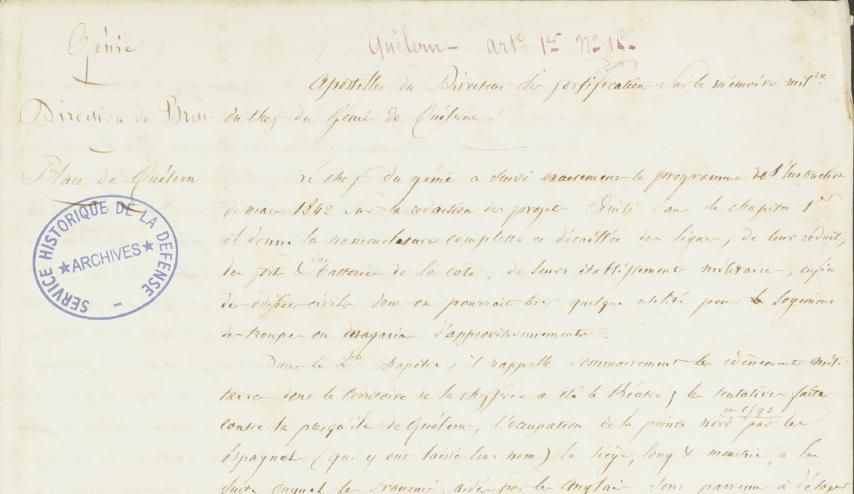 Génie
Quélern - art. 1er No. 18.
Apostilles du Directeur des fortifications sur le mémoire mil.re
Direction de Brest
du chef du Génie de Quélern.
Place de Quélern
Le chef du génie a suivi exactement le programme de l'Instruction
de mars 1842 sur la rédaction des projets. Ainsi dans le chapitre 1er
il donne la nomenclature complette et détaillée des lignes, de leur réduit,
des forts & des batteries de la côte, de leurs établissements militaires, enfin
des édifices civils dont on pourrait tirer quelque utilité pour le logement
des troupes ou magasins d'approvisionnements.
Dans le 2e chapitre, il rappelle sommairement les évènements mili-
taires dont le territoire de la chefferie a été le théatre; les tentatives faites
contre la presqu'ile de Quélern, l'occupation de la pointe nord en 1593 par les
Espagnols (qui y ont laissé leur nom) le siège, long & meurtrier, à la
suite duquel les Français, aidés par les Anglais
SERVICE HISTORIQUE DE LA DEFENSE
★ARCHIVES★